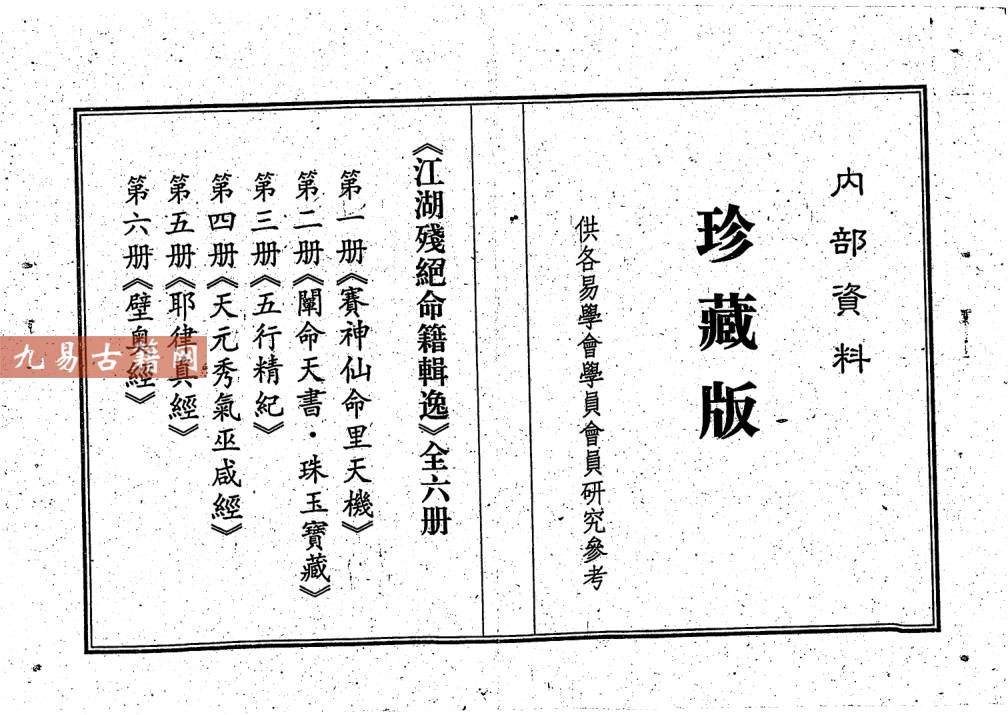 内部資料
珍藏版
供各易學會學員會員研究參考
《江湖殘絕命籍輯逸》全六册
第一册《賽神仙命里天機》
第二册《闡命天書·珠玉寶藏》
第三册《五行精紀》
第四册《天元秀氣巫咸經》
第五册《耶律真經》
第六册《壁奧經》
九易古籍网